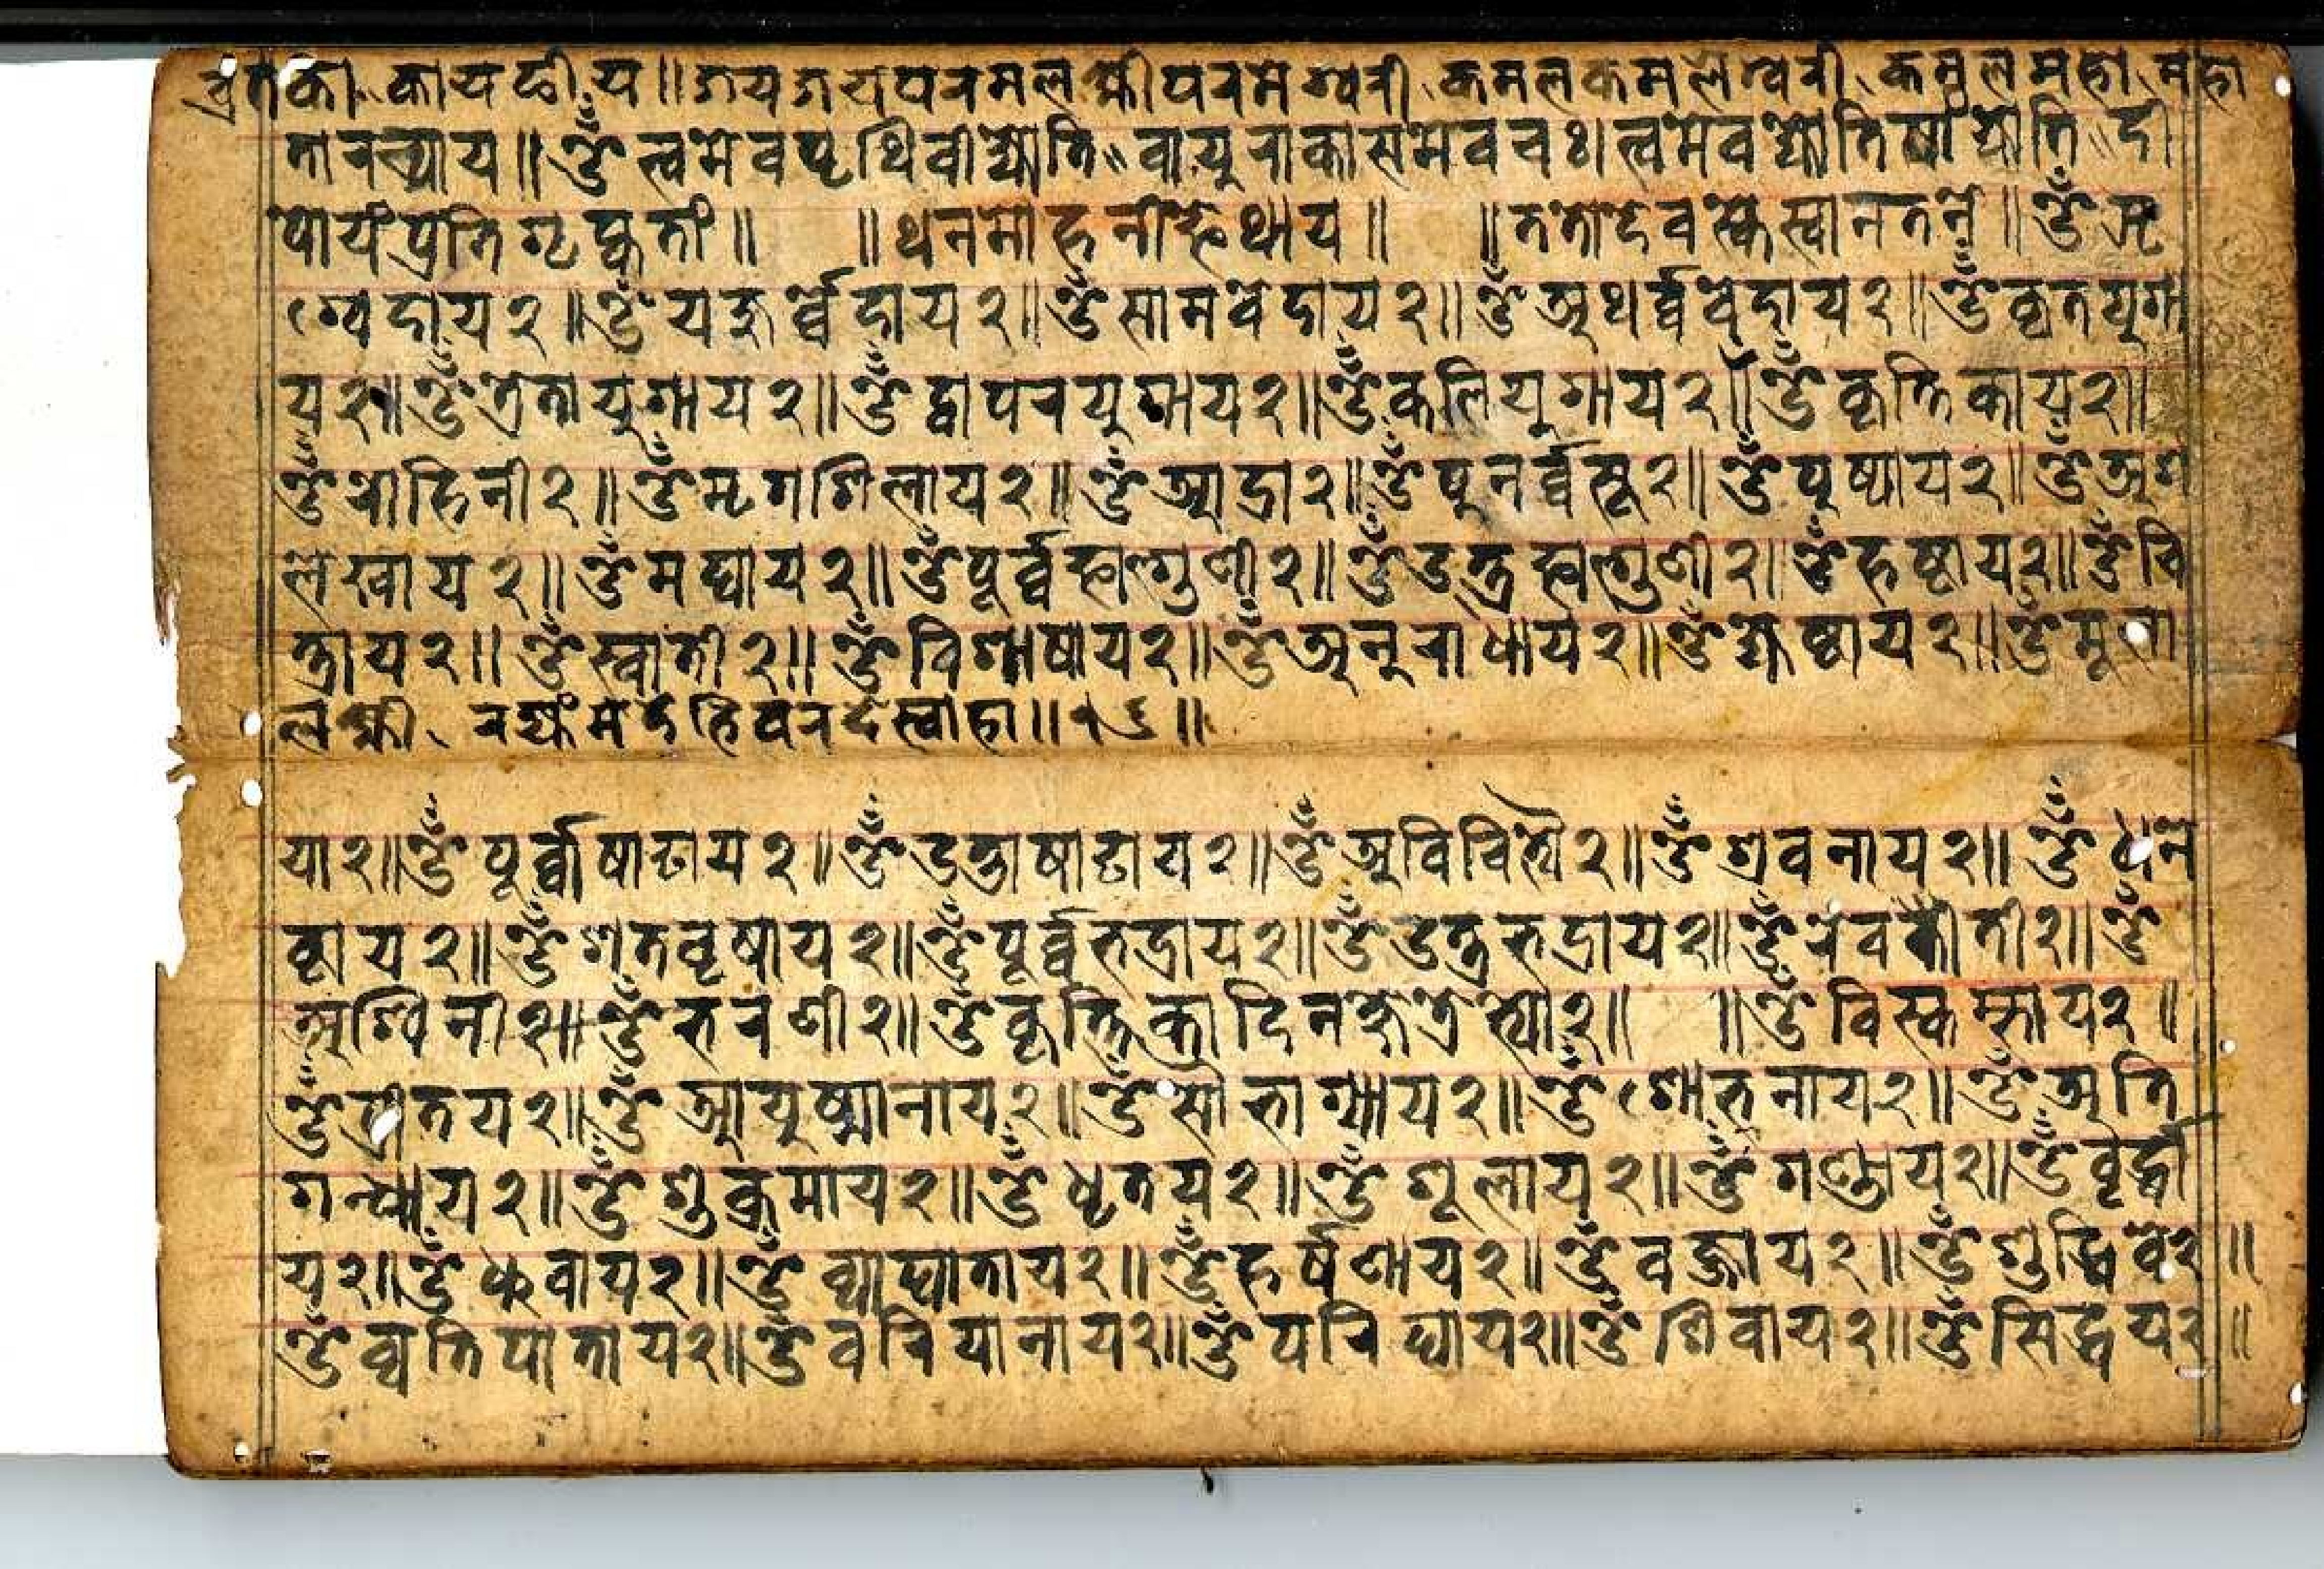 व्रतका कायछीय॥ जयजयपरमलक्ष्मीपरमेश्वरी, कमलकमलेश्वरी, कमलमहा, महा
तारच्याय॥ ॐ त्वमेवपृथिवीज्योति॥ वायुराकासमेवचः। त्वमेवज्योतिषांज्योति॥ दी
पोयंप्रतिगृह्णतां॥ ॥ थनमोहनीछेथाय॥ ॥ ततोदेवस्केस्वानतने॥ ॐ ऋ
ग्वेदाय२॥ ॐ यजुर्व्वेदाय२॥ ॐ सामवेदाय२॥ ॐ अथर्व्ववेदाय२॥ ॐ कृतयुगा
य२॥ ॐ त्रेतायुगाय२॥ ॐ द्वापरयुगाय२॥ ॐ कलियुगाय२॥ ॐ कृत्तिकाय२॥
ॐ रोहिनी२॥ ॐ मृगशिलाय२॥ ॐ आद्रा२॥ ॐ पुनर्व्वसू२॥ ॐ पुष्याय२॥ ॐ अश
लेखाय२॥ ॐ मघाय२॥ ॐ पूर्व्वफाल्गुणी२॥ ॐ उत्त्रफाल्गुणी२॥ ॐ हष्टाय२॥ ॐ चि
त्राय२॥ ॐ स्वाती२॥ ॐ विशाषाय२॥ ॐ अनुराधाय२॥ ॐ ज्येष्ठाय२॥ ॐ मूला
लक्ष्मी, रज्यंमेदेहिवरदेस्वाहा॥ १६॥
या२॥ ॐ पूर्व्वाषाढाय२॥ ॐ उत्ताषाढाय२॥ ॐ श्रवनाय२॥ ॐ धन
ष्टाय२॥ ॐ शतवृषाय२॥ ॐ पूर्व्वभद्राय२॥ ॐ उत्त्रभद्राय२॥ ॐ रेवती२॥ ॐ
अश्विनी२॥ ॐ भरणी२॥ ॐ कृत्तिकादिनक्षत्रेभ्यो२॥ ॥ ॐ विस्कम्भाय२॥
ॐ प्रीतय२॥ ॐ आयुष्मानाय२॥ ॐ सोभाग्याय२॥ ॐ शोभनाय२॥ ॐ अति
गन्धाय२॥ ॐ शुक्रमाय२॥ ॐ धृतय२॥ ॐ शूलाय२॥ ॐ गण्डाय२॥ ॐ वृर्द्धा
य२॥ ॐ ध्रुवाय२॥ ॐ व्याघाताय२॥ ॐ हर्षणाय२॥ ॐ वज्राय२॥ ॐ शुद्धिवे२॥
ॐ व्यतिपाताय२॥ ॐ वरियानाय२॥ ॐ परिघाय२॥ ॐ शिवाय२॥ ॐ सिद्धय२॥